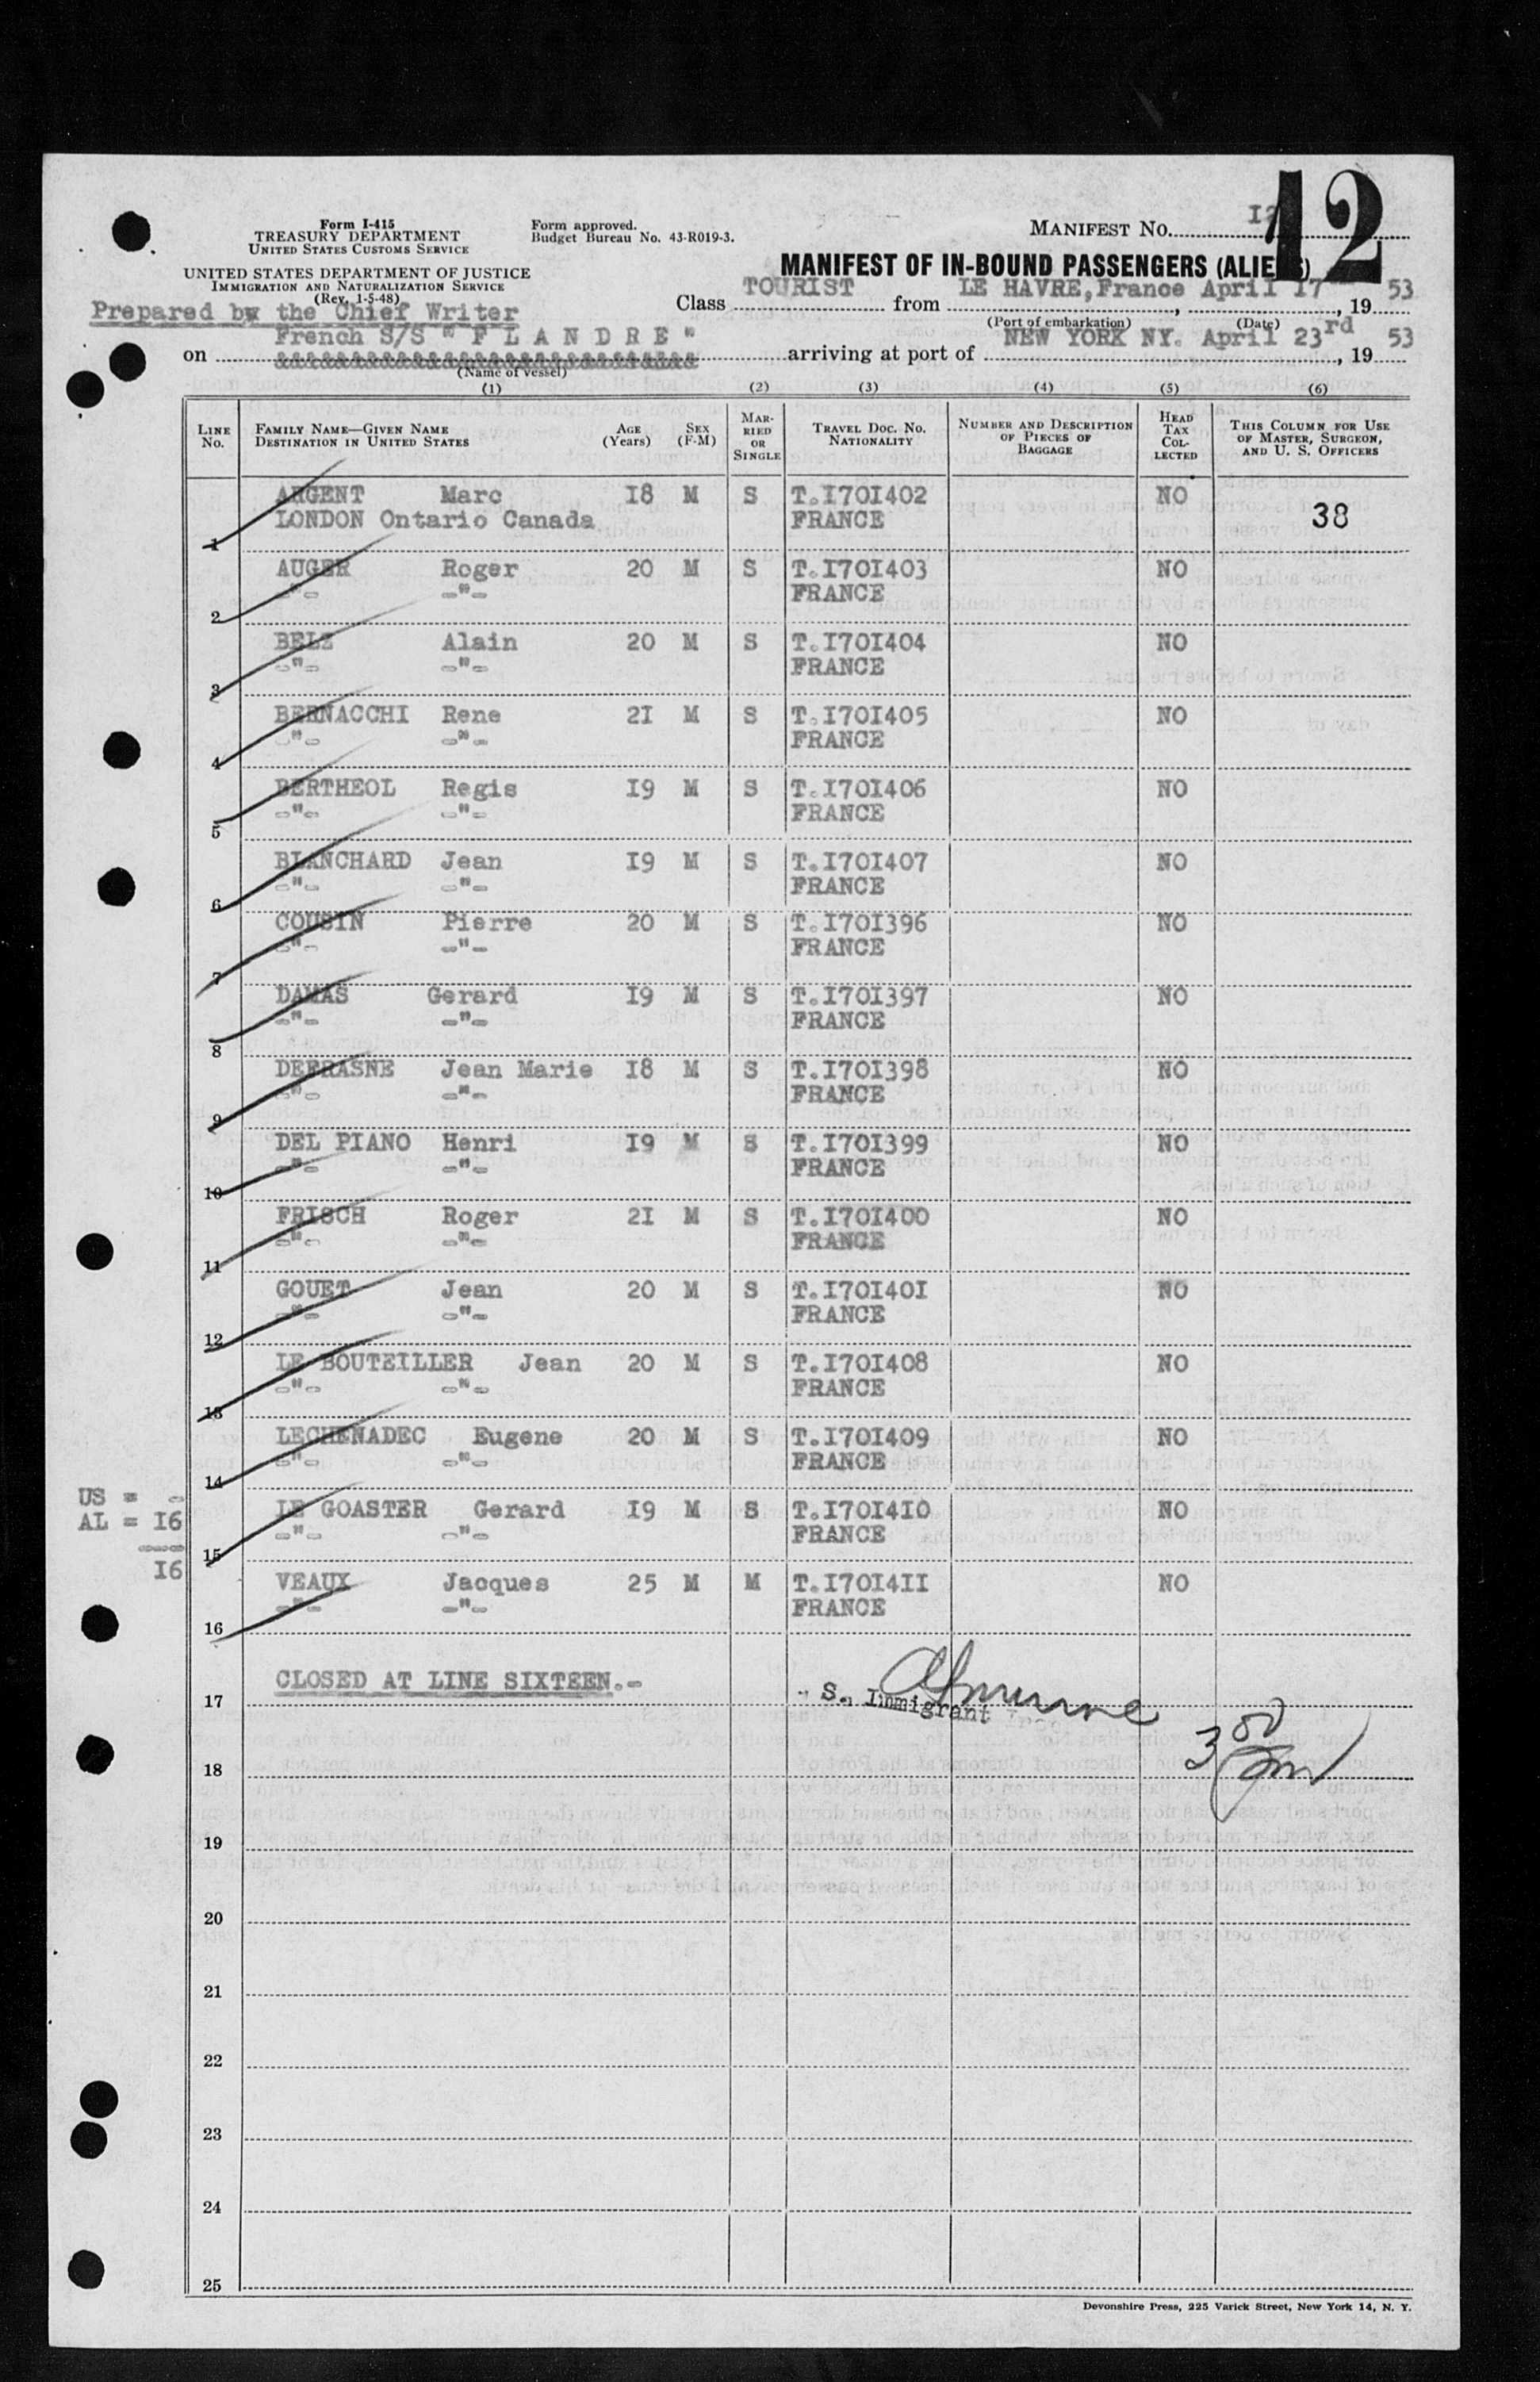 12
Form I-415
TREASURY DEPARTMENT
UNITED STATES CUSTOMS SERVICE
Form approved.
Budget Bureau No. 43-R019-3.
MANIFEST No.
UNITED STATES DEPARTMENT OF JUSTICE
IMMIGRATION AND NATURALIZATION SERVICE
(Rev. 1-5-48)
MANIFEST OF IN-BOUND PASSENGERS (ALIENS)
Prepared by the Chief Writer
Class TOURIST from LE HAVRE, France April I7, 1953
(Port of embarkation) (Date)
on French S/S " F L A N D R E " arriving at port of NEW YORK NY. April 23rd, 1953
(Name of vessel)
(1) (2) (3) (4) (5) (6)
LINE No. FAMILY NAME—GIVEN NAME DESTINATION IN UNITED STATES AGE (Years) SEX (F-M) MARRIED OR SINGLE TRAVEL DOC. NO. NATIONALITY NUMBER AND DESCRIPTION OF PIECES OF BAGGAGE HEAD TAX COLLECTED THIS COLUMN FOR USE OF MASTER, SURGEON, AND U. S. OFFICERS
1 ARGENT Marc I8 M S T.I70I402 NO
LONDON Ontario Canada FRANCE 38
2 AUGER Roger 20 M S T.I70I403 NO
-"- -"- FRANCE
3 BELZ Alain 20 M S T.I70I404 NO
-"- -"- FRANCE
4 BERNACCHI Rene 2I M S T.I70I405 NO
-"- -"- FRANCE
5 BERTHEOL Regis I9 M S T.I70I406 NO
-"- -"- FRANCE
6 BLANCHARD Jean I9 M S T.I70I407 NO
-"- -"- FRANCE
7 COUSIN Pierre 20 M S T.I70I396 NO
-"- -"- FRANCE
8 DAMAS Gerard I9 M S T.I70I397 NO
-"- -"- FRANCE
9 DEFRASNE Jean Marie I8 M S T.I70I398 NO
-"- -"- FRANCE
10 DEL PIANO Henri I9 M S T.I70I399 NO
-"- -"- FRANCE
11 FRISCH Roger 2I M S T.I70I400 NO
-"- -"- FRANCE
12 GOUET Jean 20 M S T.I70I40I NO
-"- -"- FRANCE
13 LE BOUTEILLER Jean 20 M S T.I70I408 NO
-"- -"- FRANCE
14 LECHENADEC Eugene 20 M S T.I70I409 NO
-"- -"- FRANCE
US = -
AL = I6
I6
15 LE GOASTER Gerard I9 M S T.I70I4I0 NO
-"- -"- FRANCE
16 VEAUX Jacques 25 M M T.I70I4II NO
-"- -"- FRANCE
17 CLOSED AT LINE SIXTEEN.-
S. Immigrant
18
19
20
21
22
23
24
25
Devonshire Press, 225 Varick Street, New York 14, N. Y.